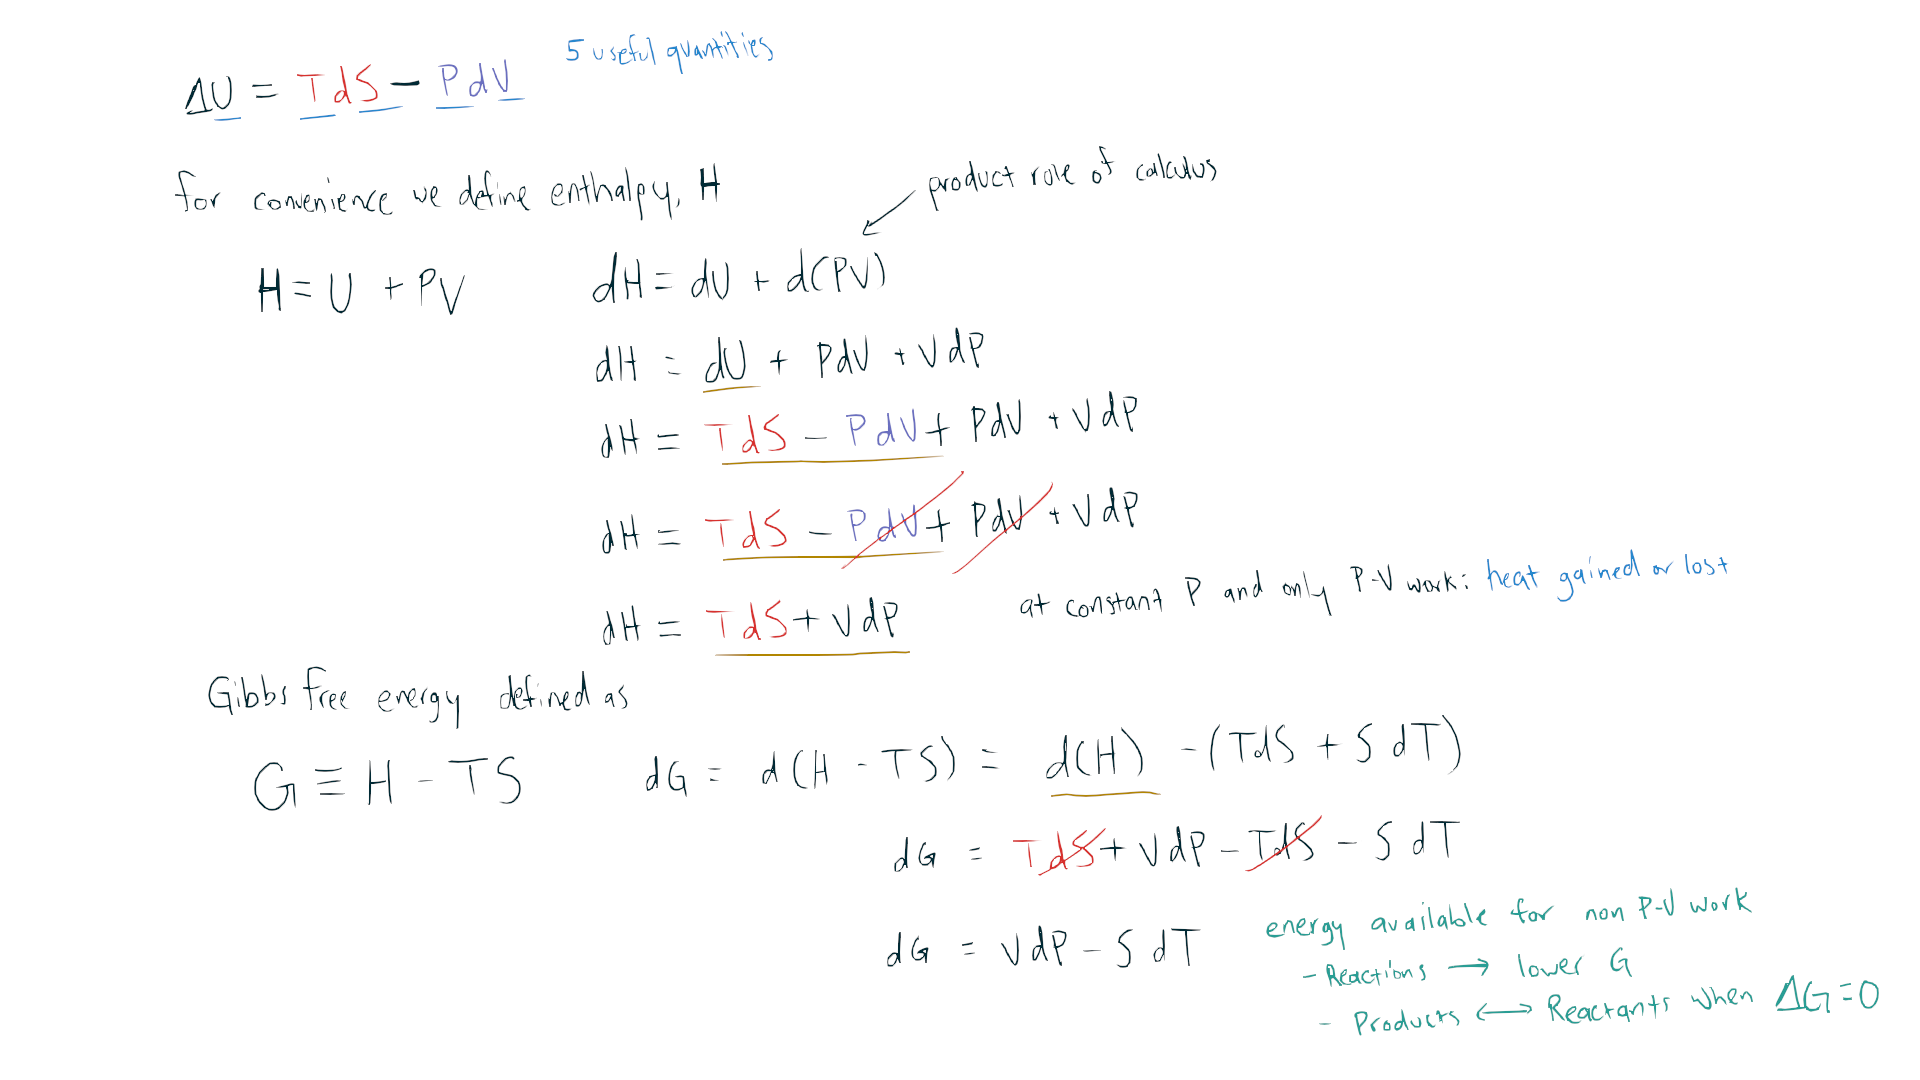 5 useful quantities
ΔU = TdS - PdV
for convenience we define enthalpy, H
product rule of calculus
H = U + PV
dH = dU + d(PV)
dH = dU + PdV + VdP
dH = TdS - PdV + PdV + VdP
dH = TdS - PdV + PdV + VdP
at constant P and only P-V work: heat gained or lost
dH = TdS + VdP
Gibbs free energy defined as
G ≡ H - TS
dG = d(H - TS) = d(H) - (TdS + SdT)
dG = TdS + VdP - TdS - SdT
dG = VdP - SdT
energy available for non P-V work
- Reactions → lower G
- Products ↔ Reactants when ΔG = 0